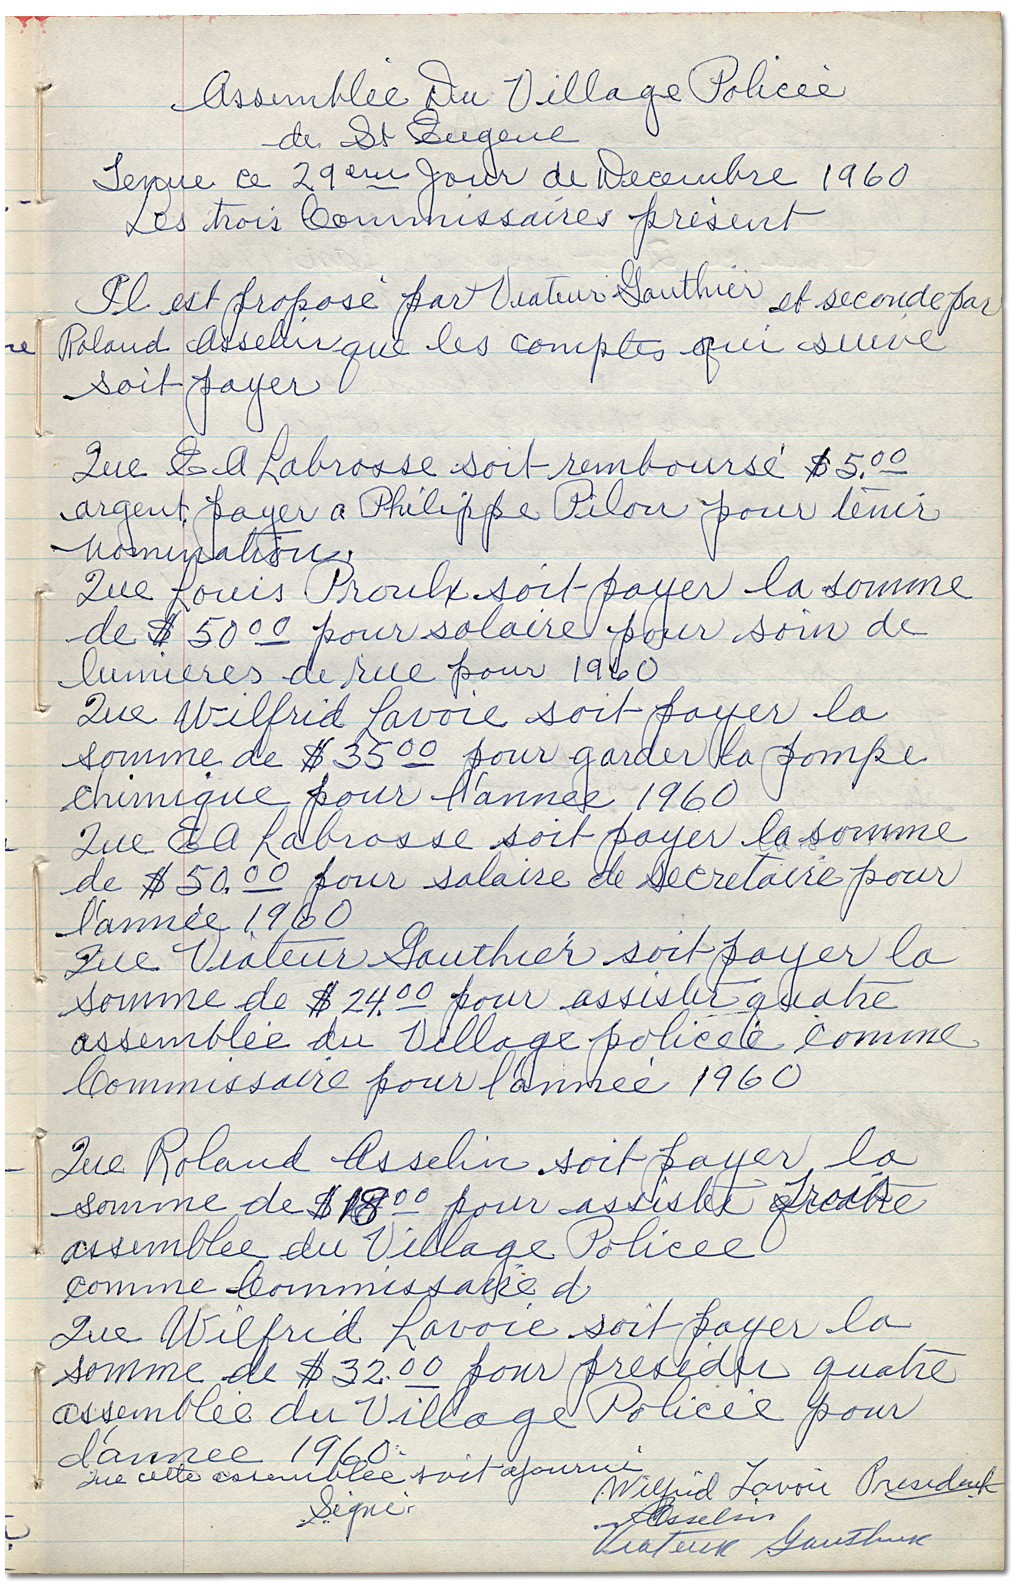 Assemblée Du Village Policée
de St Eugene
Tenue ce 29eme Jour de Decembre 1960
Les trois Commissaires présent
Il est proposé par Viateur Gauthier et seconde par
Roland Asselin que les comptes qui suive
soit payer
Que E A Labrosse soit remboursé $5.00
argent payer a Philippe Pilon pour tenir
nomination.
Que Louis Proulx soit payer la somme
de $50 00 pour salaire pour soin de
lumieres de rue pour 1960
Que Wilfrid Lavoie soit payer la
somme de $35 00 pour garder la pompe
chimique pour l'annee 1960
Que E A Labrosse soit payer la somme
de $50.00 pour salaire de Secretaire pour
l'année 1960
Que Viateur Gauthier soit payer la
somme de $24.00 pour assister quatre
assemblée du Village policée comme
Commissaire pour l'année 1960
Que Roland Asselin soit payer la
somme de $18 00 pour assister trois
assemblée du Village Policee
comme Commissaire d
Que Wilfrid Lavoie soit payer la
somme de $32.00 pour presider quatre
assemblée du Village Policée pour
l'annee 1960.
Que cette assemblée soit ajourné
Signé Wilfrid Lavoie President
Asselin
Viateur Gauthier